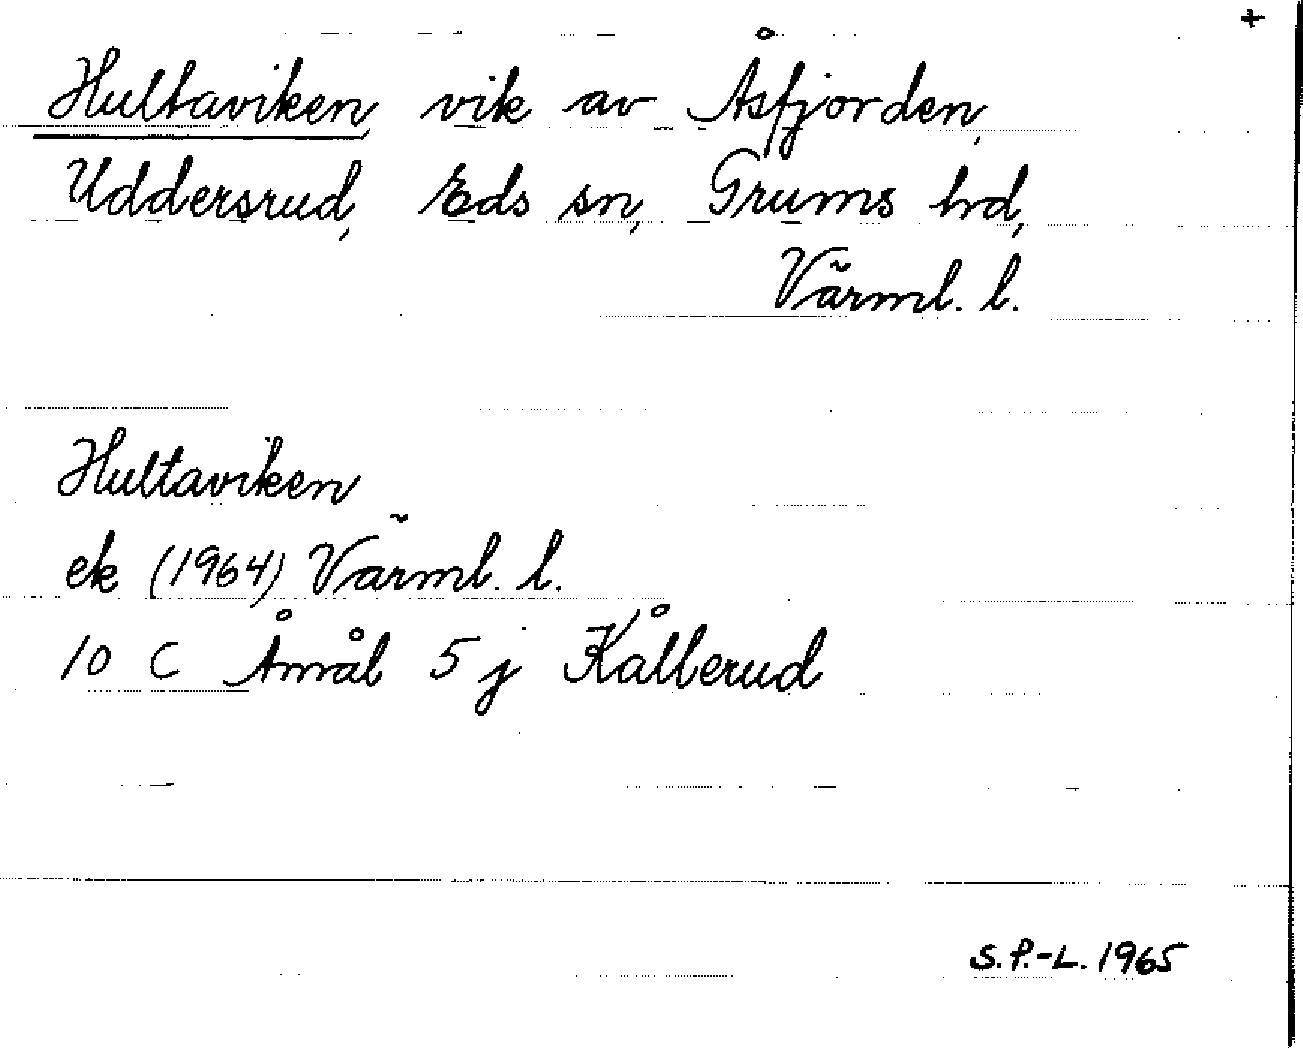 +
Hultaviken, vik av Åsfjorden,
Uddersrud, Eds sn, Grums hd,
Värml. l.
Hultaviken
ek (1964) Värml. l.
10 C Åmål 5 j Kålberud
S. P.-L. 1965